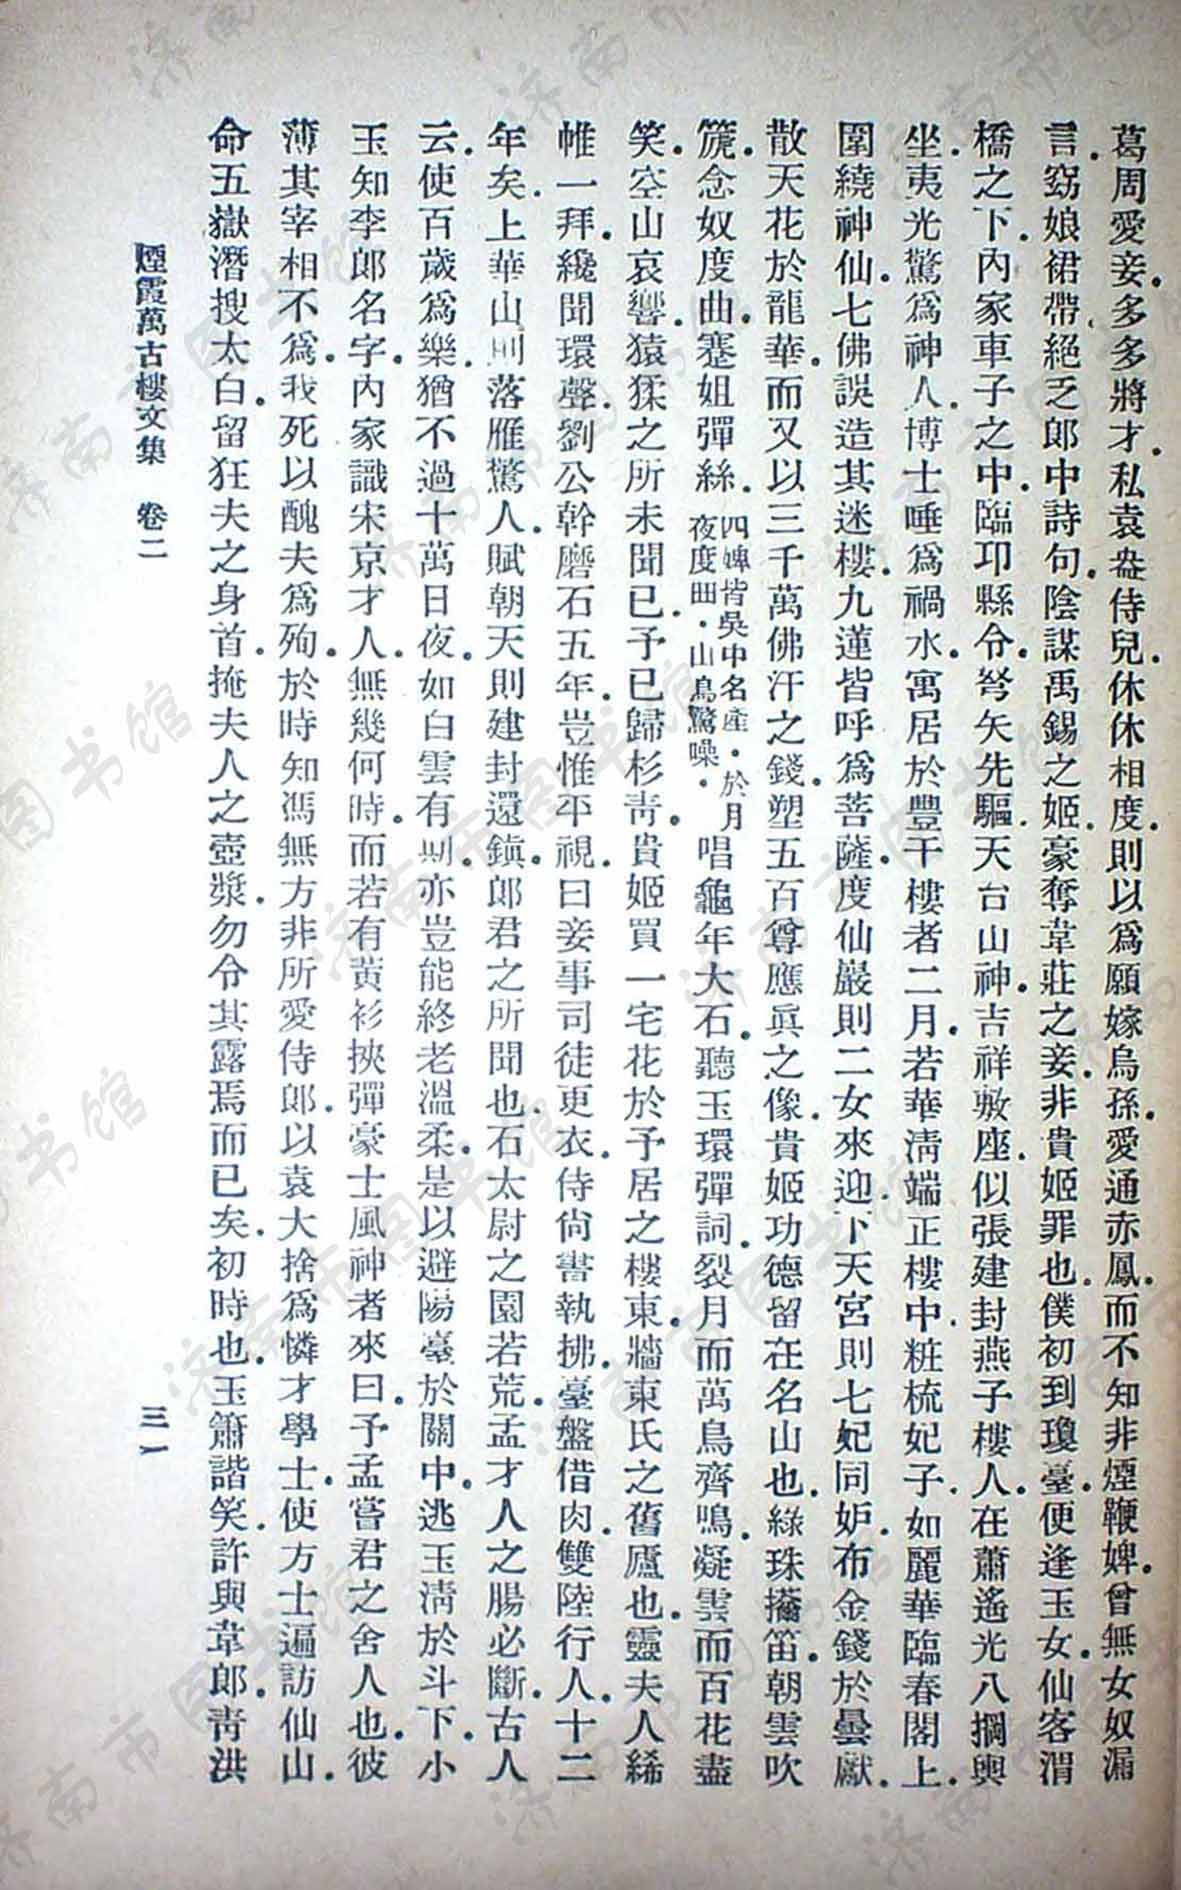 葛周愛妾.多多將才.私袁盎侍兒.休休相度.則以爲願嫁烏孫.愛通赤鳳.而不知非煙鞭婢.曾無女奴漏
言.窈娘裙帶.絕乏郎中詩句.陰謀禹錫之姬.豪奪韋莊之妾.非貴姬罪也.僕初到瓊臺.便逢玉女.仙客渭
橋之下.內家車子之中.臨卭縣令.弩矢先驅.天台山神.吉祥敷座.似張建封燕子樓.人在蕭遙光八掆輿
坐.夷光驚爲神人.博士唾爲禍水.寓居於豐干樓者二月.若華淸端正樓中.粧梳妃子.如麗華臨春閣上.
圍繞神仙.七佛誤造其迷樓.九蓮皆呼爲菩薩.度仙巖則二女來迎.下天宮則七妃同妒.布金錢於曇巘.
散天花於龍華.而又以三千萬佛汗之錢.塑五百尊應眞之像.貴姬功德.留在名山也.綠珠擫笛.朝雲吹
篪.念奴度曲.蹇姐彈絲.
四婢皆吳中名產.於月
夜度曲.山鳥驚噪.
唱龜年大石.聽玉環彈詞.裂月而萬鳥齊鳴.凝雲而百花盡
笑.空山哀響.猿猱之所未聞.已予已歸杉靑.貴姬買一宅.花於予居之樓東.牆東氏之舊廬也.靈夫人絺
帷一拜.纔聞環聲.劉公幹磨石五年.豈惟平視.曰妾事司徒更衣.侍尙書執拂.臺盤借肉.雙陸行人.十二
年矣.上華山則落雁驚人.賦朝天則建封還鎭.郎君之所聞也.石太尉之園若荒.孟才人之腸必斷.古人
云.使百歲爲樂.猶不過十萬日夜.如白雲有期.亦豈能終老溫柔.是以避陽臺於關中.逃玉淸於斗下.小
玉知李郎名字.內家識宋京才人.無幾何時.而若有黃衫挾彈豪士風神者來曰.予孟嘗君之舍人也.彼
薄其宰相不爲.我死以醜夫爲殉.於時知馮無方非所愛侍郎.以袁大捨爲憐才學士.使方士遍訪仙山.
命五嶽潛搜太白.留狂夫之身首.掩夫人之壺漿.勿令其露焉而已矣.初時也.玉簫諧笑.許與韋郎.靑洪
煙霞萬古樓文集　卷二
三一